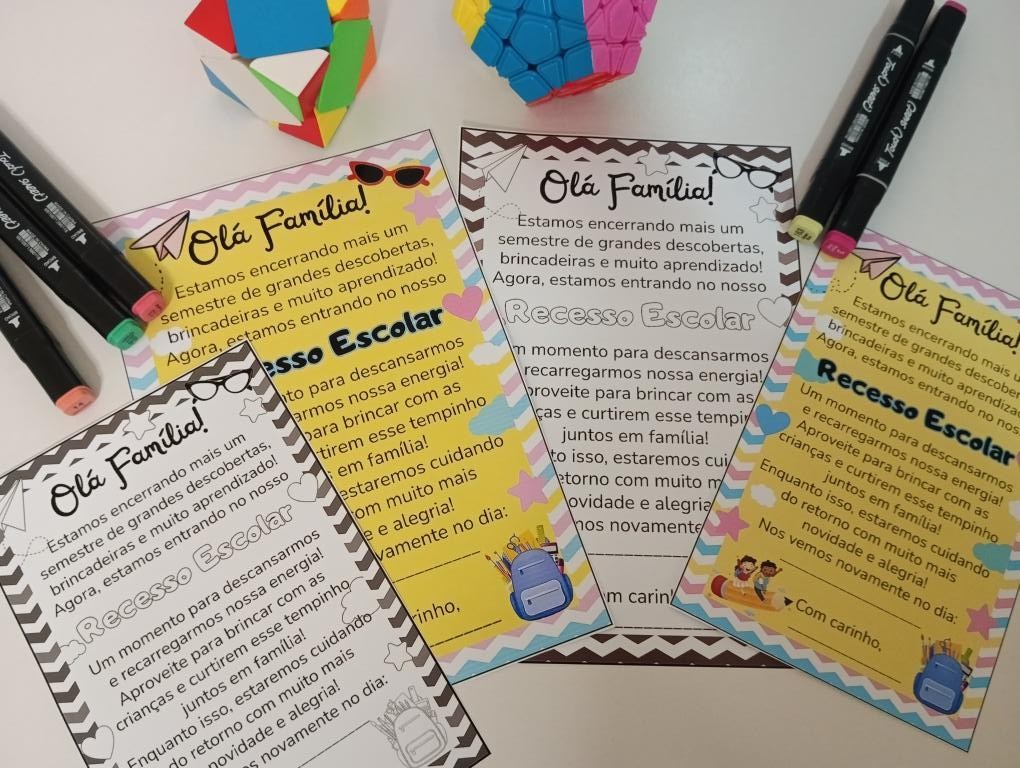 Olá Família!
Estamos encerrando mais um
semestre de grandes descobertas,
brincadeiras e muito aprendizado!
Agora, estamos entrando no nosso
esso Escolar
nto para descansarmos
armos nossa energia!
para brincar com as
tirem esse tempinho
em família!
estaremos cuidando
com muito mais
e e alegria!
vamente no dia:
rinho,
Olá Família!
Estamos encerrando mais um
semestre de grandes descobertas,
brincadeiras e muito aprendizado!
Agora, estamos entrando no nosso
Recesso Escolar
m momento para descansarmos
recarregarmos nossa energia!
proveite para brincar com as
ças e curtirem esse tempin
juntos em família!
to isso, estaremos cui
etorno com muito m
ovidade e alegria!
mos novamente
om carinh
Olá Família!
Estamos encerrando mais u
semestre de grandes descober
brincadeiras e muito aprendiza
Agora, estamos entrando no nos
Recesso Escolar
Um momento para descansarmos
e recarregarmos nossa energia!
Aproveite para brincar com as
crianças e curtirem esse tempinho
juntos em família!
Enquanto isso, estaremos cuidando
do retorno com muito mais
novidade e alegria!
Nos vemos novamente no dia:
Com carinho,
Olá Família!
Estamos encerrando mais um
semestre de grandes descobertas,
brincadeiras e muito aprendizado!
Agora, estamos entrando no nosso
Recesso Escolar
Um momento para descansarmos
e recarregarmos nossa energia!
Aproveite para brincar com as
crianças e curtirem esse tempinho
juntos em família!
Enquanto isso, estaremos cuidando
do retorno com muito mais
novidade e alegria!
os novamente no dia: